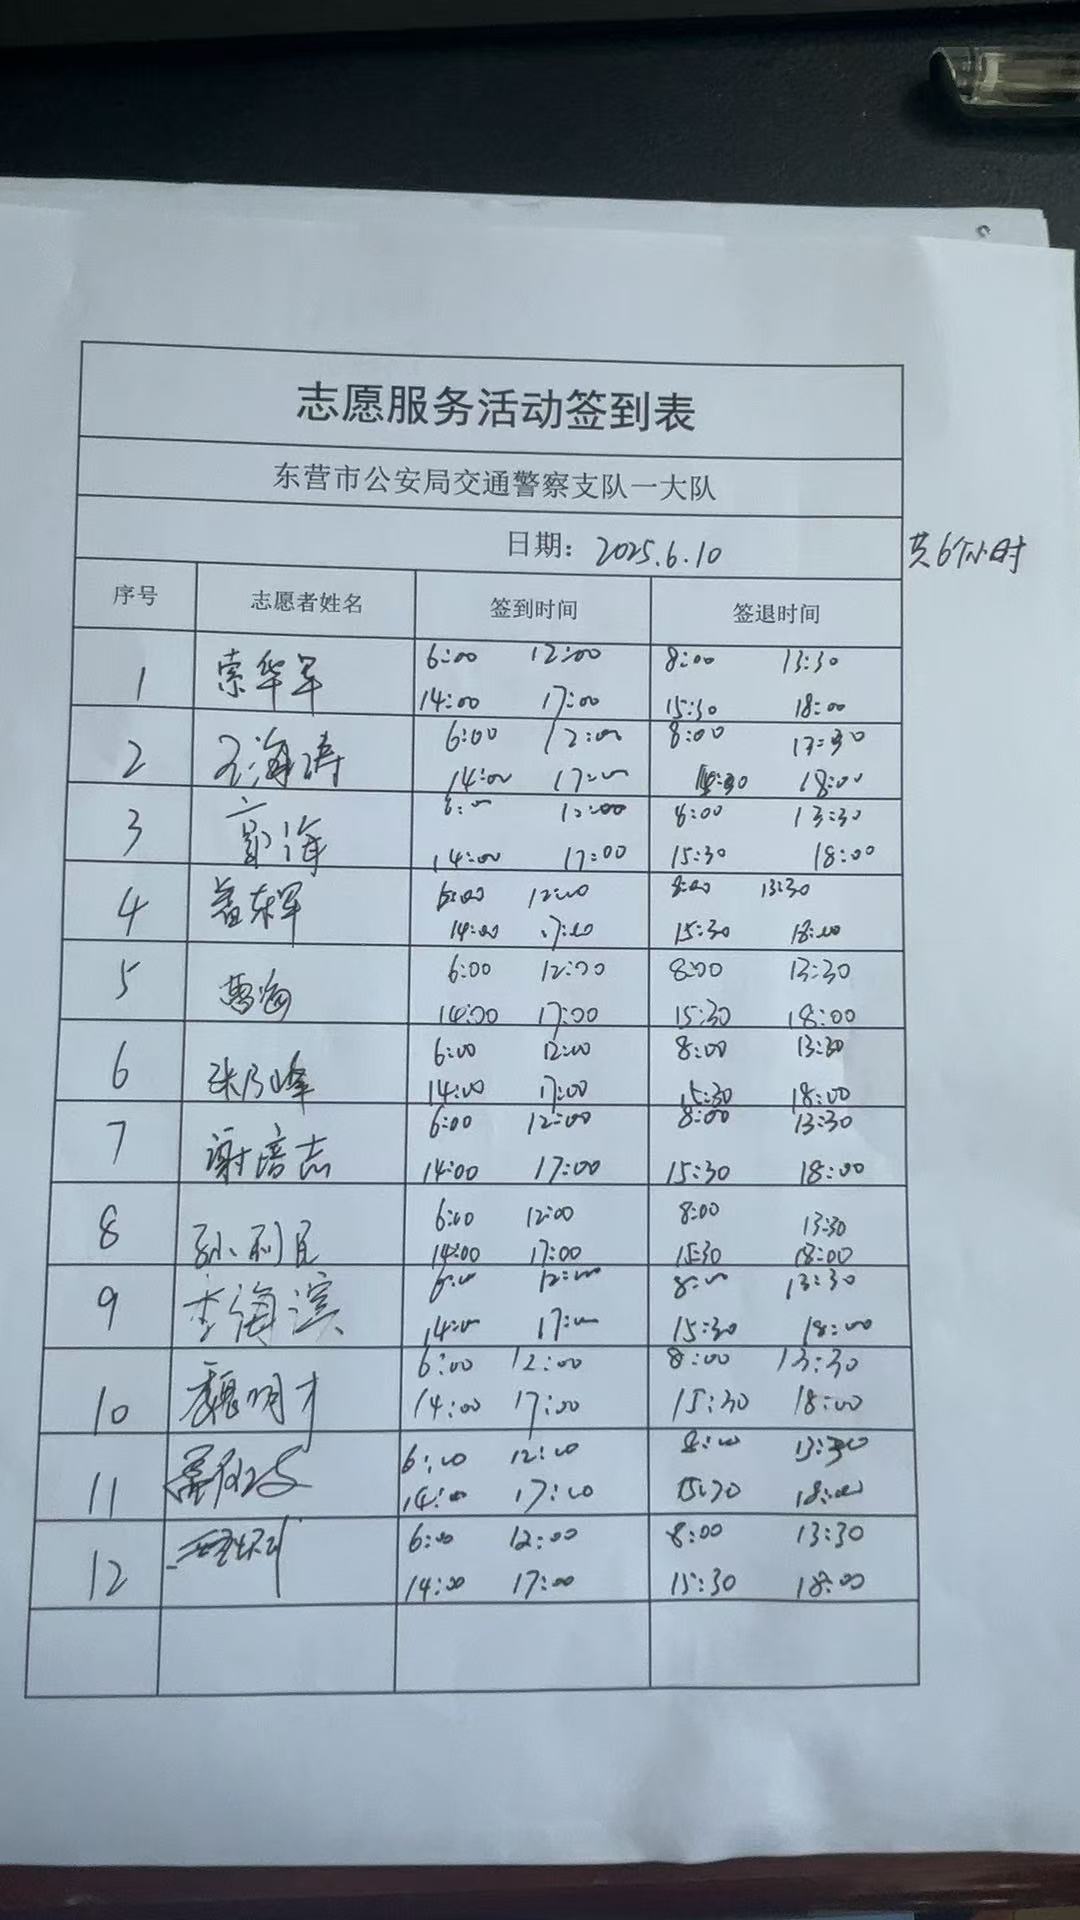 志愿服务活动签到表
东营市公安局交通警察支队一大队
日期：2025.6.10 共6个小时
序号 志愿者姓名 签到时间 签退时间
1 索华军 6:00 12:00 8:00 13:30
14:00 17:00 15:30 18:00
2 王海涛 6:00 12:00 8:00 13:30
14:00 17:00 15:30 18:00
3 郭海 6:00 12:00 8:00 13:30
14:00 17:00 15:30 18:00
4 东军 6:00 12:00 8:00 13:30
14:00 17:00 15:30 18:00
5 曹海 6:00 12:00 8:00 13:30
14:00 17:00 15:30 18:00
6 张乃峰 6:00 12:00 8:00 13:30
14:00 17:00 15:30 18:00
7 谢培志 6:00 12:00 8:00 13:30
14:00 17:00 15:30 18:00
8 孙利民 6:00 12:00 8:00 13:30
14:00 17:00 15:30 18:00
9 李海滨 6:00 12:00 8:00 13:30
14:00 17:00 15:30 18:00
10 魏明才 6:00 12:00 8:00 13:30
14:00 17:00 15:30 18:00
11 6:00 12:00 8:00 13:30
14:00 17:00 15:30 18:00
12 6:00 12:00 8:00 13:30
14:00 17:00 15:30 18:00